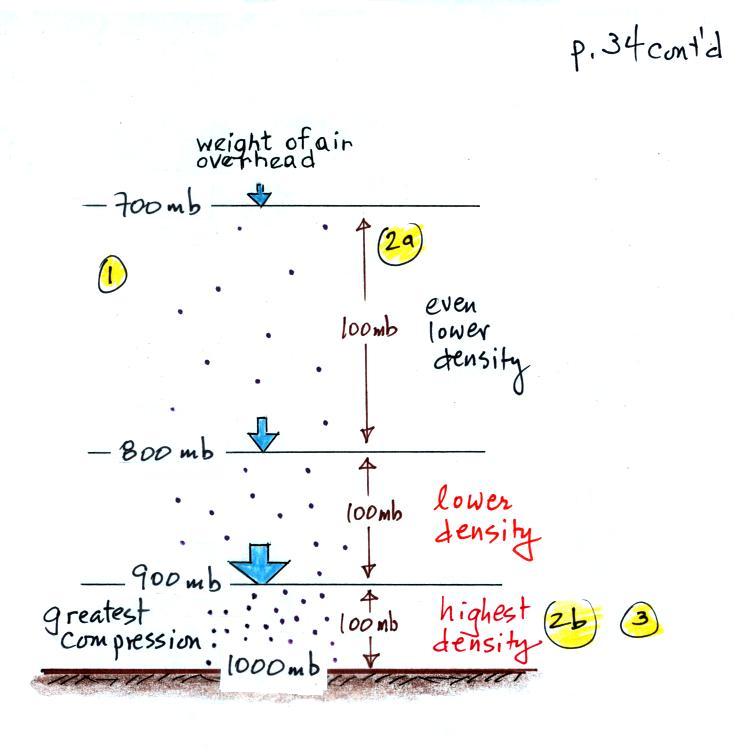 p.34 cont'd
weight of air
overhead
700 mb
2a
1
100mb
even
lower
density
800 mb
100mb
lower
density
900 mb
greatest
compression
100mb
highest
density
2b
3
1000 mb